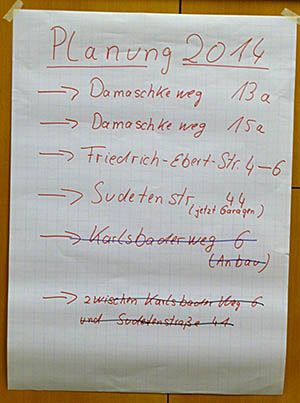 Planung 2014
→ Damaschkeweg 13a
→ Damaschkeweg 15a
→ Friedrich-Ebert-Str. 4-6
→ Sudetenstr. 44
(jetzt Garagen)
→ Karlsbaderweg 6
(Anbau)
→ zwischen Karlsbader Weg 6
und Sudetenstraße 44